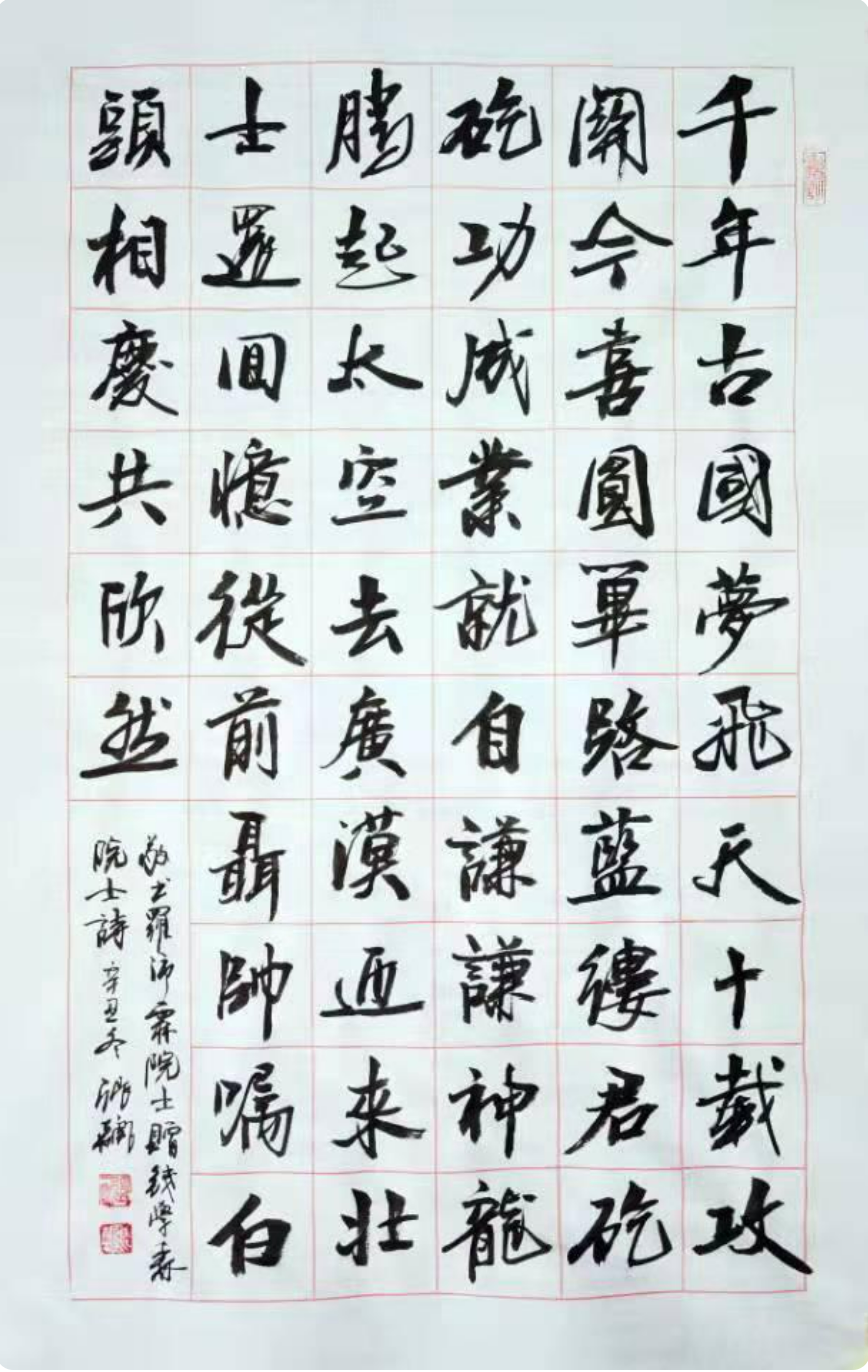 千年古國夢飛天十載攻
關今喜圓篳路藍縷君矻
矻功成業就自謙謙神龍
騰起太空去廣漠迊來壯
士還回憶從前聶帥囑白
頭相慶共欣然
敬書羅沛霖院士贈錢學森
院士詩 辛丑冬 張